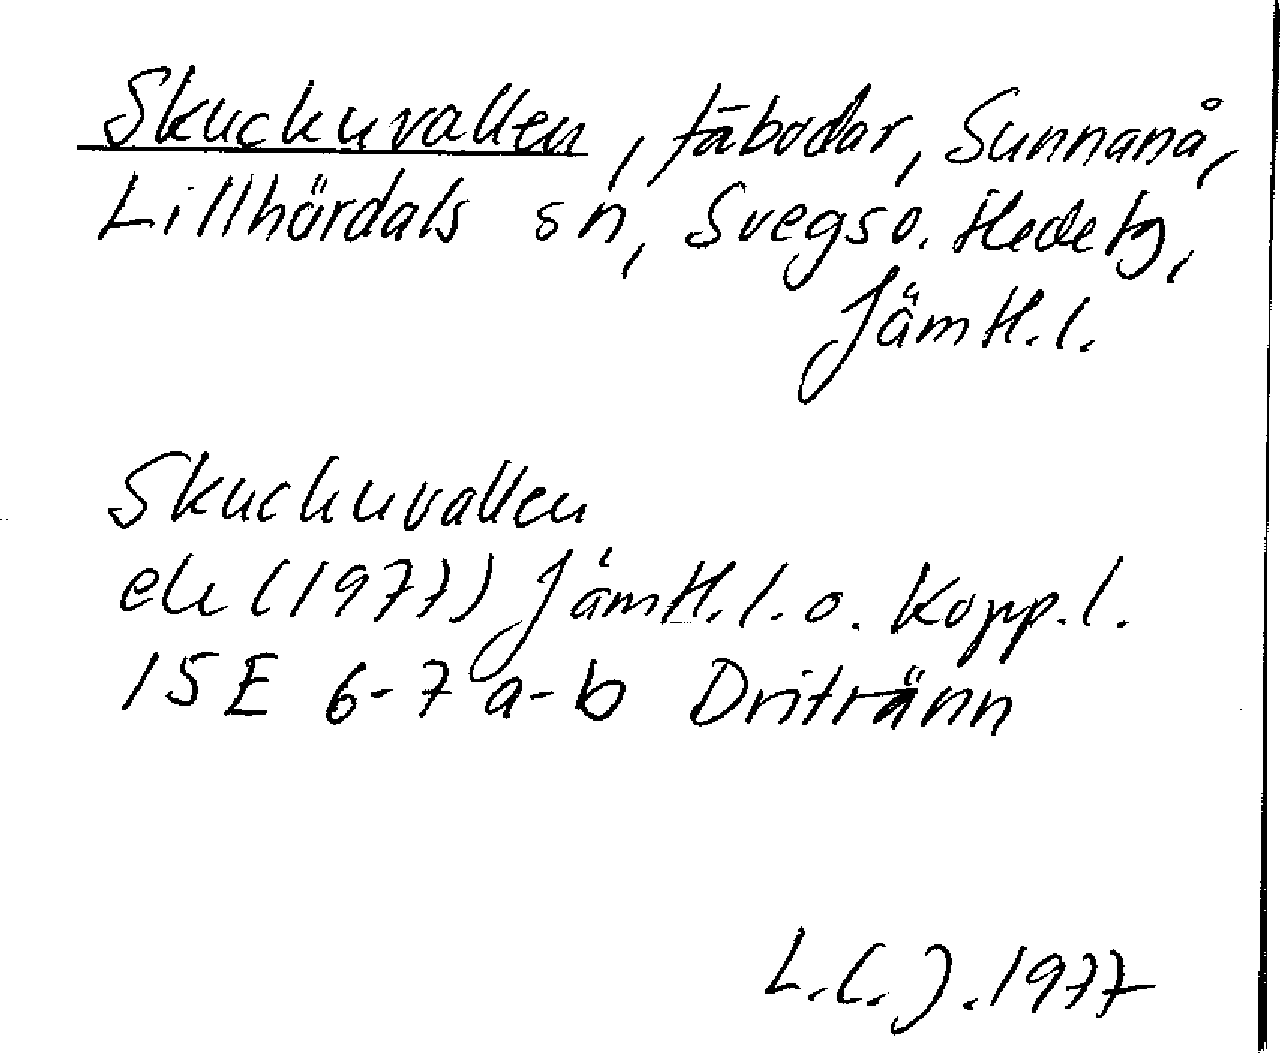 Skuckuvallen, fäbodar, Sunnanå,
Lillhärdals sn, Svegs o. Hede tg,
Jämtl. l.
Skuckuvallen
ek (1977) Jämtl. l. o. Kopp. l.
15E 6-7 a-b Dritränn
L.C.J. 1977